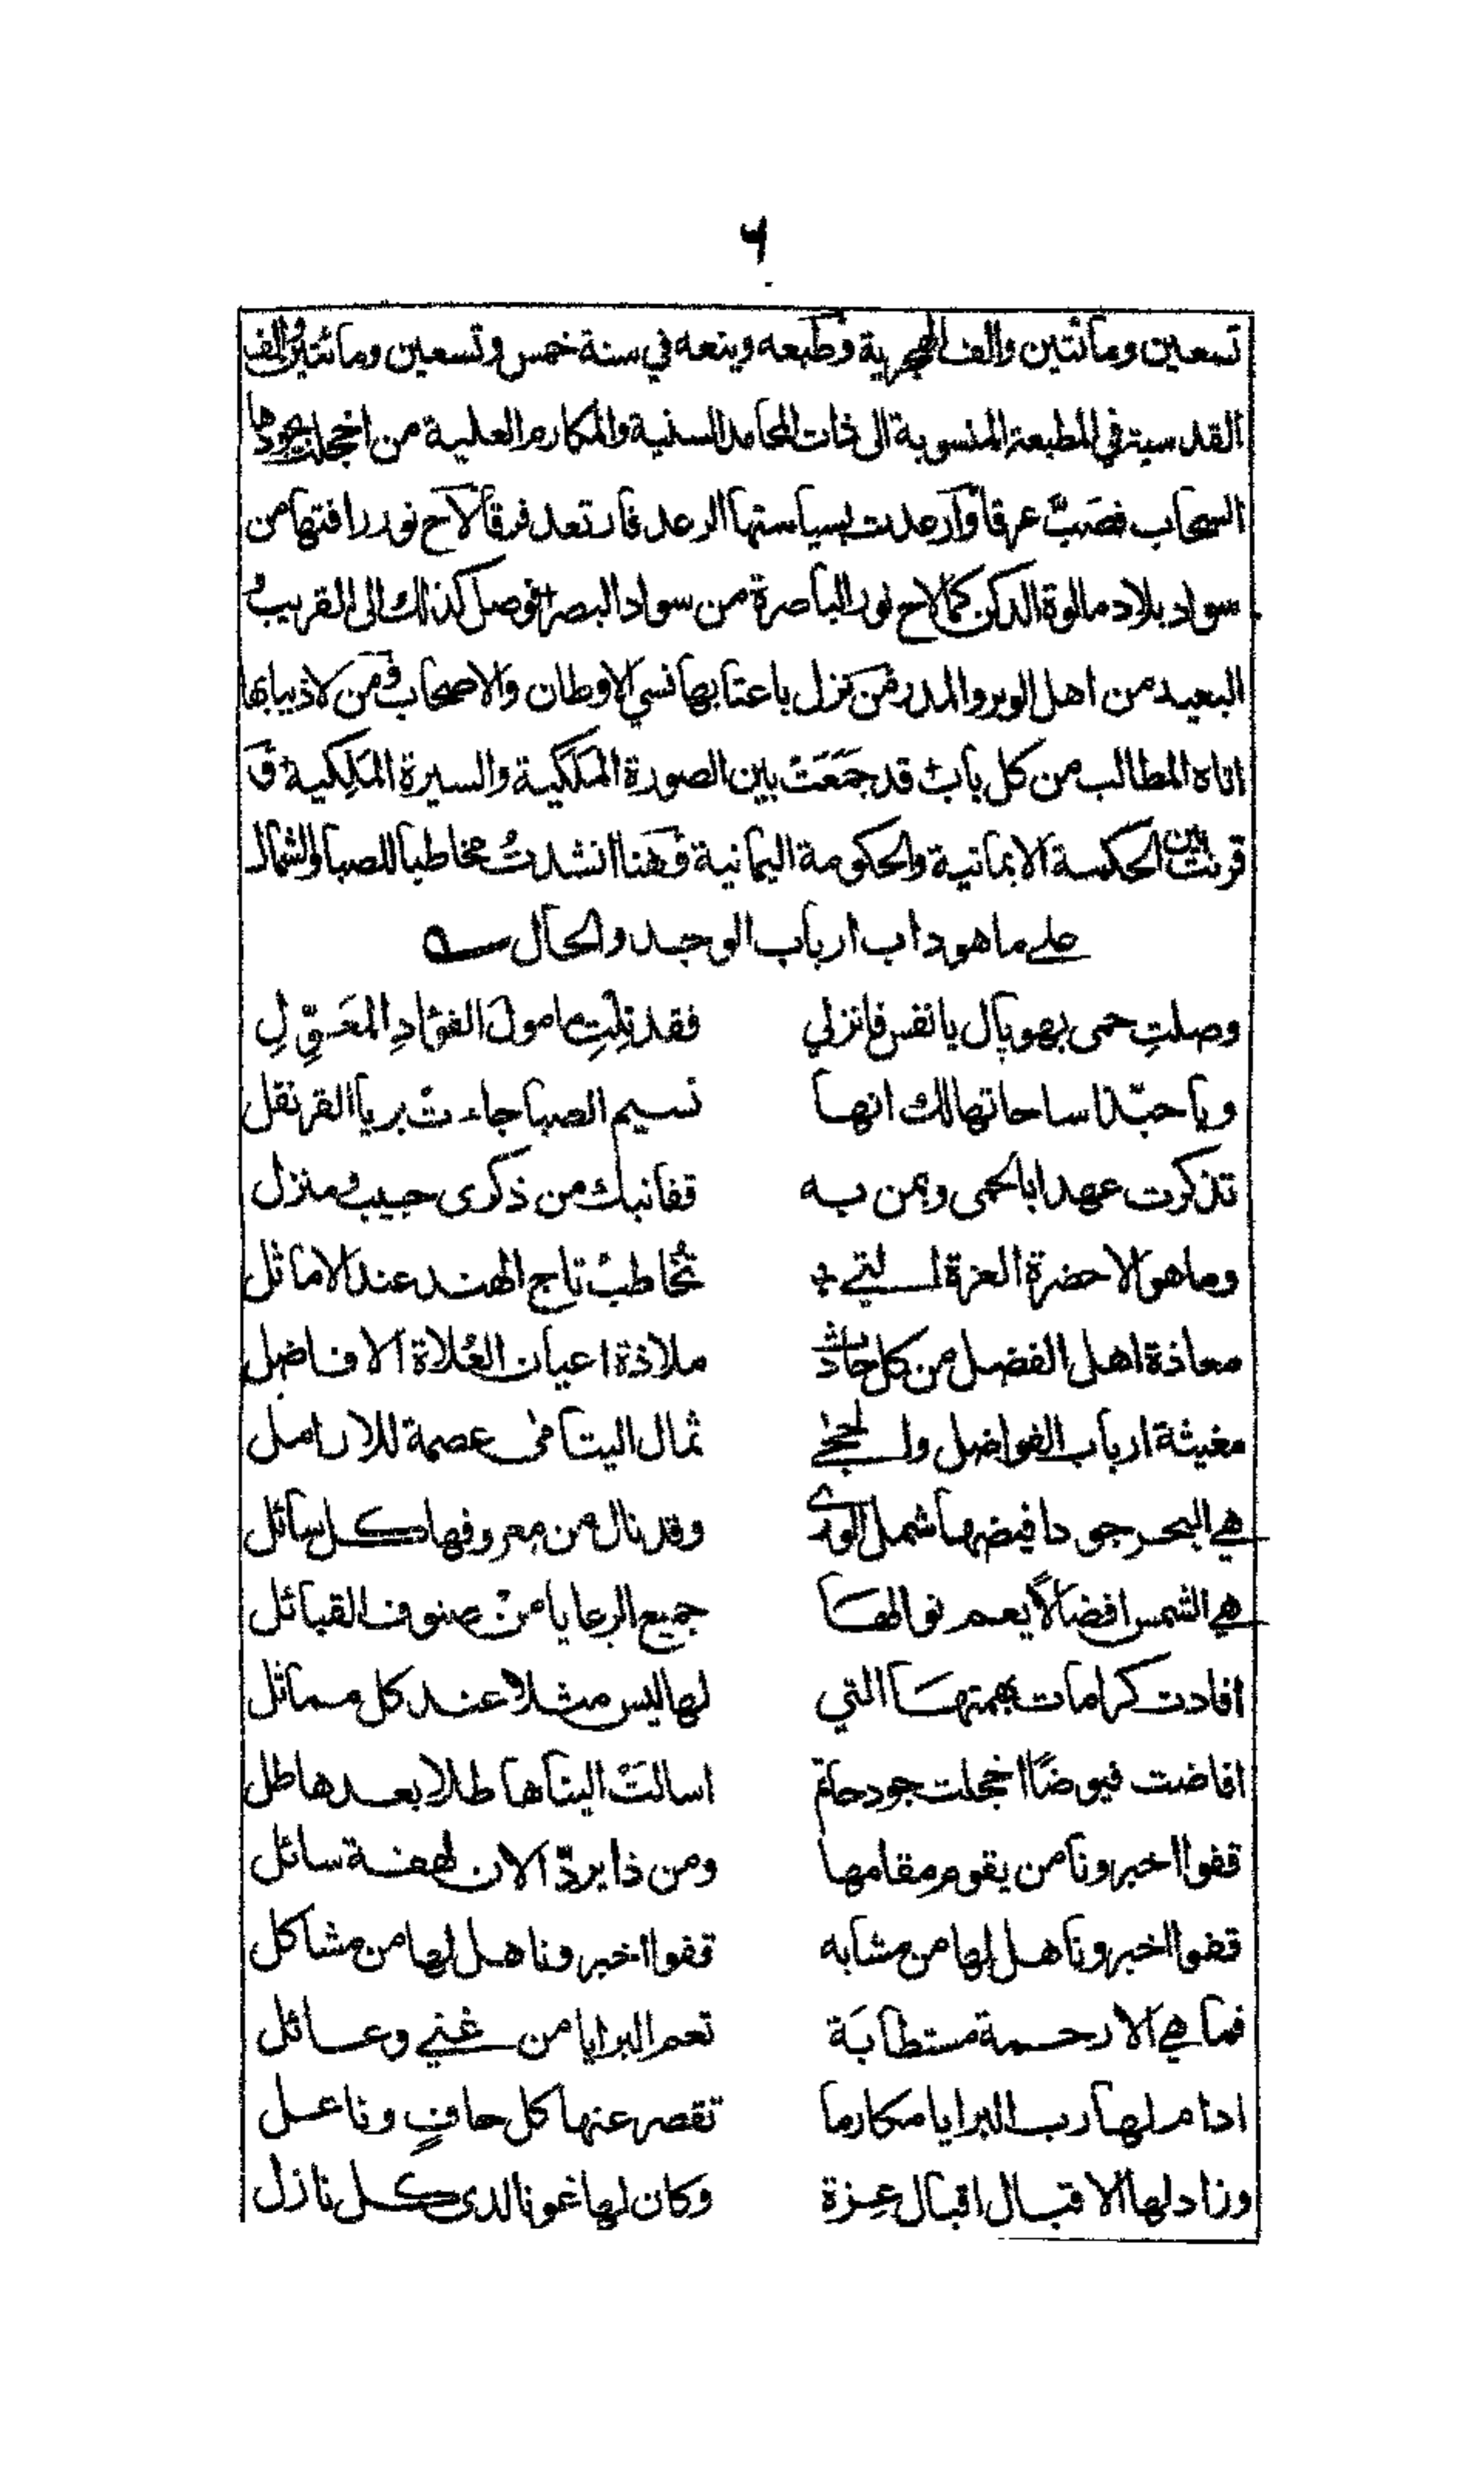 ٦
تسعين ومائتين والف الهجرية وطبعه وينعه في سنة خمس وتسعين ومائتين والف
القدسية في المطبعة المنسوبة الى ذات المحامد السنية والمكارم العلية من اخجلت بجودها
السحاب فصَبَّ عرقا وارعدت بسياستها الرعد فارتعد فرقا لاح نور رافتها من
سواد بلاد مالوة الدكن كما لاح نور الباصرة من سواد البصر فوصل كذلك الى القريب و
البعيد من اهل الوبر والمدر فمن نزل باعتابها نسي الاوطان والاصحاب ومن لاذ ببابها
اتاه المطالب من كل باب قد جَمَعَتْ بين الصورة المَلَكية والسيرة المَلِكية و
قرنت بين الحكمة الايمانية والحكومة اليمانية وهنا انشدتُ مخاطبا للصبا والشمال
على ما هو داب ارباب الوجد والحال
وصلتِ حمى بهوپال يا نفس فانزلي فقد نِلْتِ مامولَ الفؤادِ المعَوِّلِ
ويا حبّذا ساحاتها لك انها نسيم الصبا جاءت بريا القرنفل
تذكرت عهدا بالحمى وبمن به قفا نبك من ذكرى حبيب ومنزل
وما هو الا حضرة العزة التي تُخاطبُ تاج الهند عند الاماثل
معاذة اهل الفضل من كل حادث ملاذة اعيان العُلاة الافاضل
مغيثة ارباب الفواضل والحجى ثمال اليتامى عصمة للارامل
هي البحر جودا فيضها شمل الورى وقد نال من معروفها كل سائل
هي الشمس افضالاً يعم نوالها جميع الرعايا من صنوف القبائل
افادت كرامات بهمتها التي لها ليس مثلا عند كل مماثل
افاضت فيوضًا اخجلت جود حاتم اسالت الينا هاطلا بعد هاطل
قفوا اخبرونا من يقوم مقامها ومن ذا يردّ الان لهفة سائل
قفوا اخبرونا هل لها من مشابه قفوا اخبرونا هل لها من مشاكل
فما هي الا رحمة مستطابَة تعم البرايا من غني وعائل
ادام لها رب البرايا مكارما تقصر عنها كل حافٍ وناعل
وزاد لها الاقبال اقبال عزة وكان لها عونا لدى كل نازل